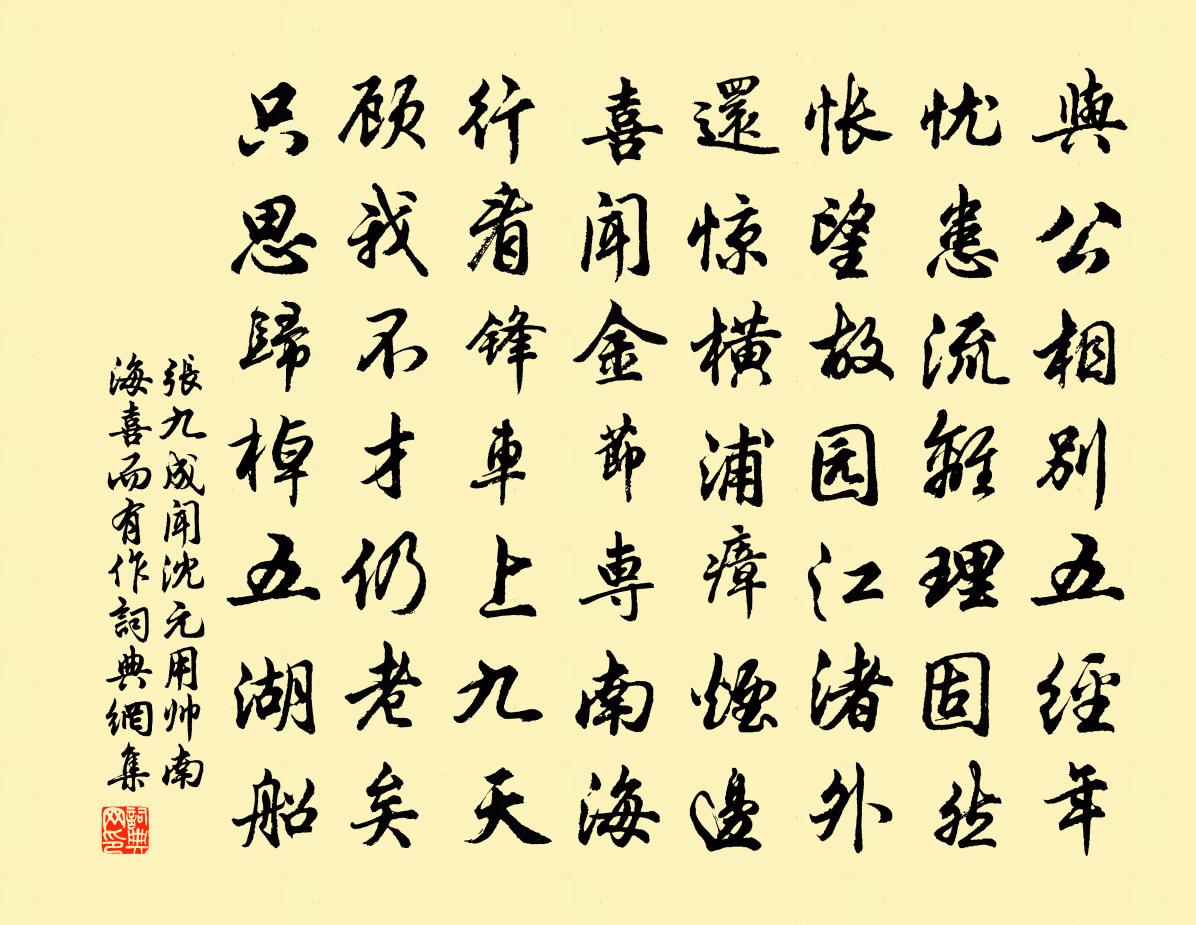 與公相別五經年
忧患流離理固然
怅望故园江渚外
還惊橫浦瘴煙邊
喜闻金節専南海
行看鋒車上九天
顾我不才仍老矣
只思歸棹五湖船
張九成闻沈元用帅南
海喜而有作詞典網集
詞典
网印